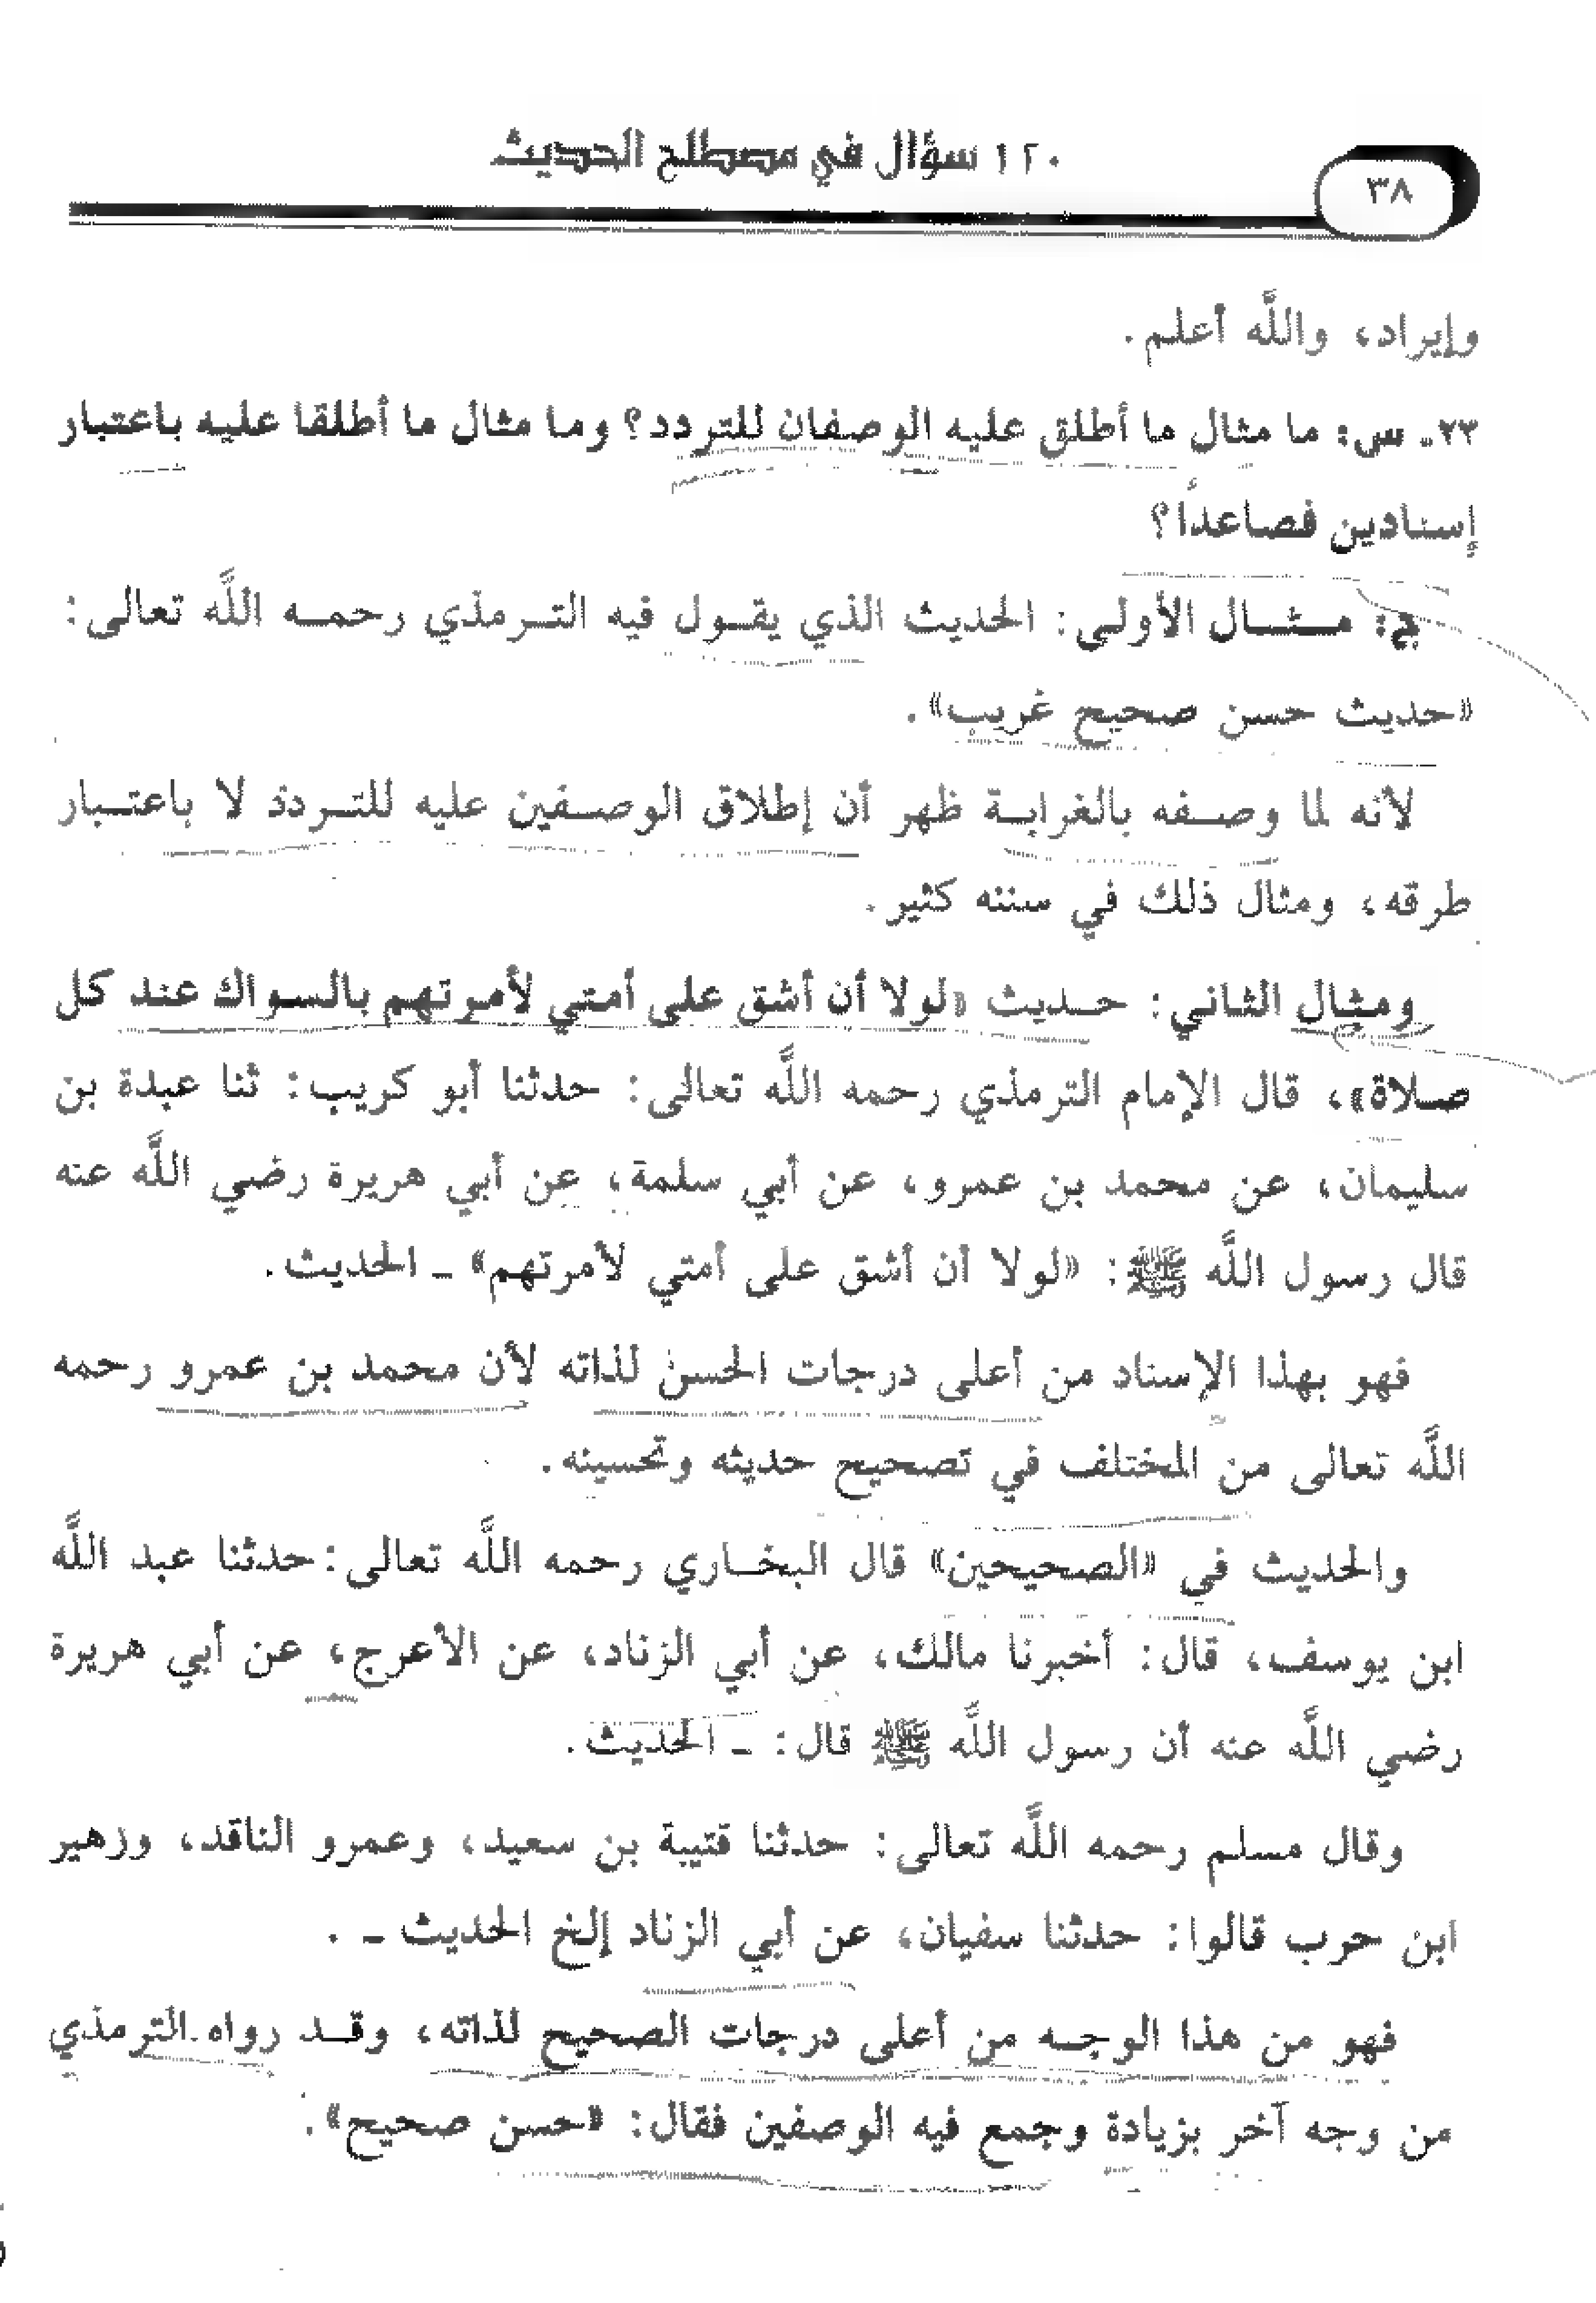 ١٢٠ سؤال في مصطلح الحديث
٣٨
وإيراد، واللَّه أعلم.
٢٣ـ س: ما مثال ما أطلق عليه الوصفان للتردد؟ وما مثال ما أطلقا عليه باعتبار
إسنادين فصاعداً؟
ج: مـثـال الأولى: الحديث الذي يقـول فيه التـرمذي رحمـه اللَّه تعالى:
«حديث حسن صحيح غريب».
لأنه لما وصـفه بالغرابـة ظهر أن إطلاق الوصـفين عليه للتـردد لا باعتـبار
طرقه، ومثال ذلك في سننه كثير.
ومثال الثاني: حـديث «لولا أن أشق على أمتي لأمرتهم بالسواك عند كل
صلاة»، قال الإمام الترمذي رحمه اللَّه تعالى: حدثنا أبو كريب: ثنا عبدة بن
سليمان، عن محمد بن عمرو، عن أبي سلمة، عن أبي هريرة رضي اللَّه عنه
قال رسول اللَّه ﷺ: «لولا أن أشق على أمتي لأمرتهم» ـ الحديث.
فهو بهذا الإسناد من أعلى درجات الحسن لذاته لأن محمد بن عمرو رحمه
اللَّه تعالى من المختلف في تصحيح حديثه وتحسينه.
والحديث في «الصحيحين» قال البخـاري رحمه اللَّه تعالى: حدثنا عبد اللَّه
ابن يوسف، قال: أخبرنا مالك، عن أبي الزناد، عن الأعرج، عن أبي هريرة
رضي اللَّه عنه أن رسول اللَّه ﷺ قال: ـ الحديث.
وقال مسلم رحمه اللَّه تعالى: حدثنا قتيبة بن سعيد، وعمرو الناقد، وزهير
ابن حرب قالوا: حدثنا سفيان، عن أبي الزناد إلخ الحديث ـ .
فهو من هذا الوجـه من أعلى درجات الصحيح لذاته، وقـد رواه الترمذي
من وجه آخر بزيادة وجمع فيه الوصفين فقال: «حسن صحيح».